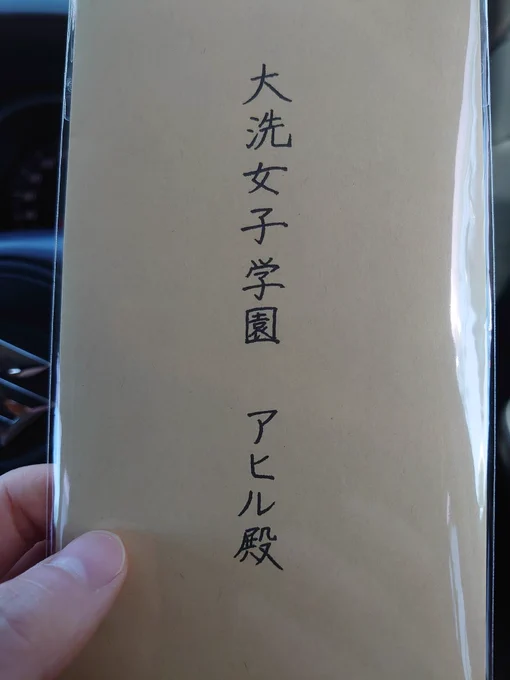 大洗女子学園　アヒル殿